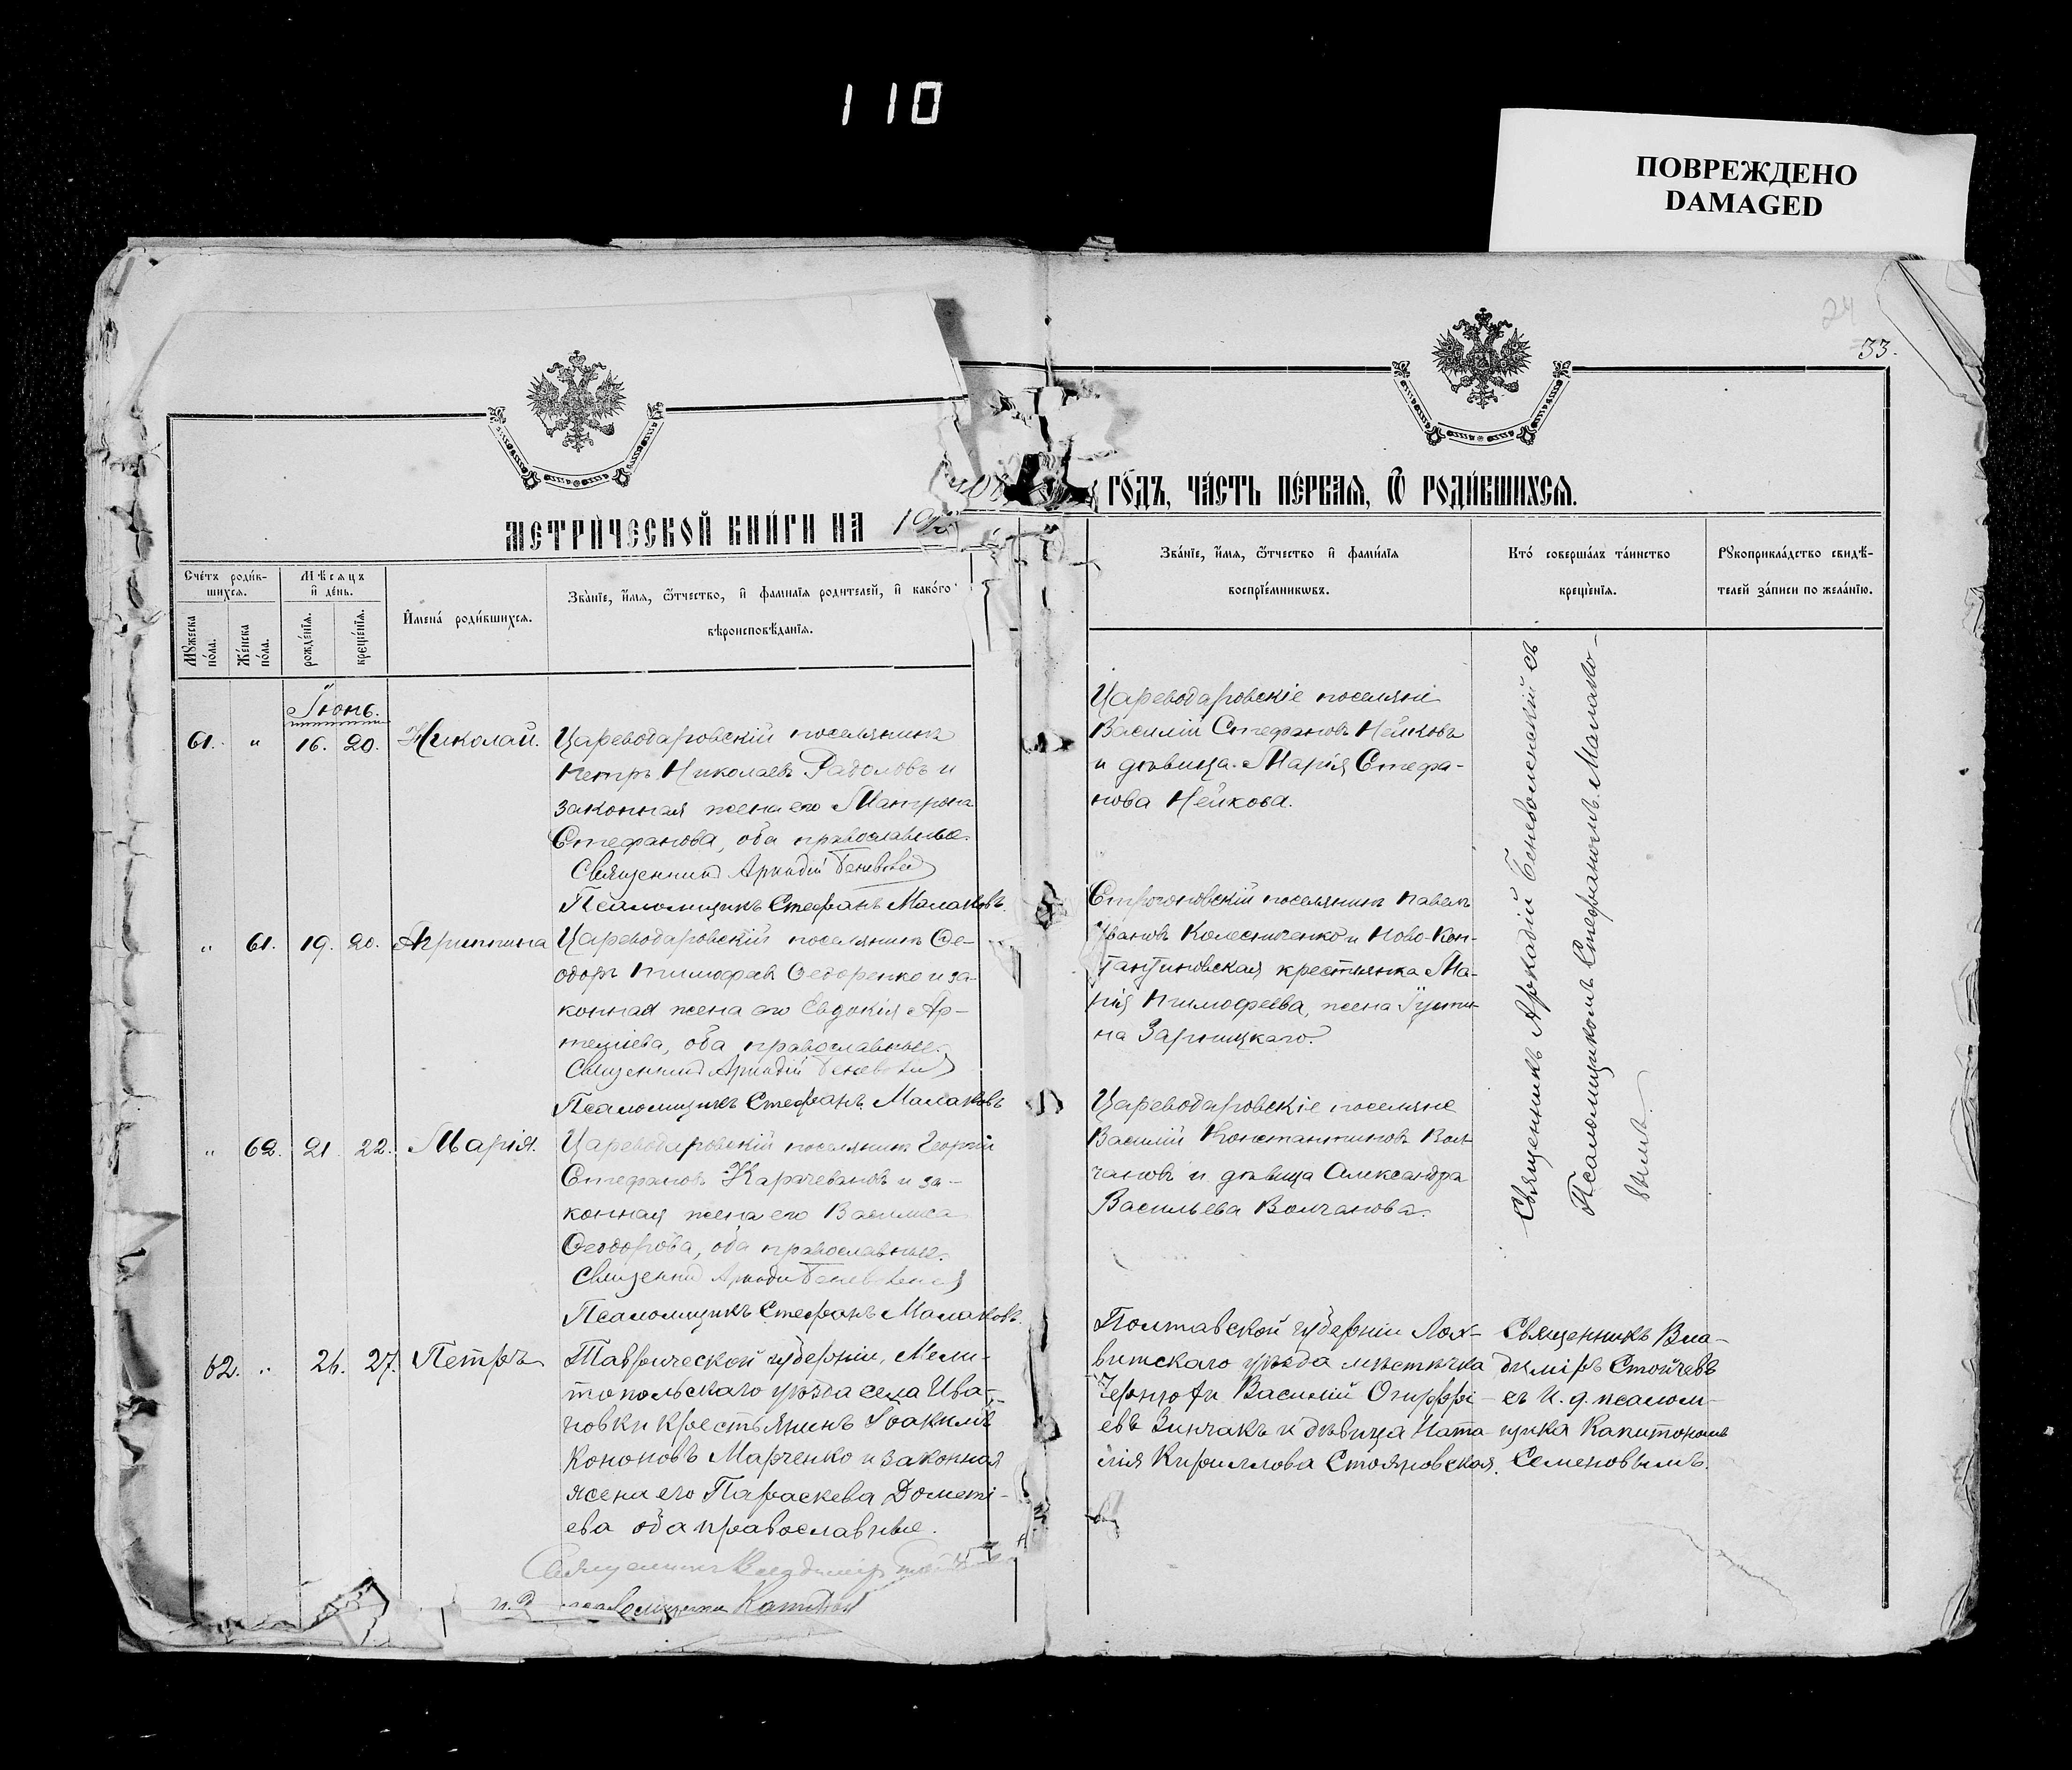 110
ПОВРЕЖДЕНО
DAMAGED
24
33.
МЕТРИ́ЧЕСКОЙ КНИ́ГИ НА 19
ГО́ДЪ, ЧА́СТЬ ПЕ́РВАЯ, Ѽ РОДИ́ВШИХСЯ.
Сче́тъ роди́в-
шихся.
Мѣсяцъ
и҆ де́нь.
Мꙋ́жеска
по́ла.
Же́нска
по́ла.
рожде́нїя.
креще́нїя.
И҆мена́ роди́вшихся.
Зва́нїе, и҆́мя, ѻ҆́тчество, и҆ фами́лїя роди́телей, и҆ како́гѡ
вѣроисповѣ́данїя.
Зва́нїе, и҆́мя, ѻ҆́тчество и҆ фами́лїя
воспрїе́мникѡвъ.
Кто̀ соверша́лъ та́инство
креще́нїя.
Рꙋкоприкла́дство свидѣ́-
телей за́писи по жела́нїю.
Іюнь.
61. " 16. 20. Николай.
Цареводаровскій поселянинъ
Петръ Николаевъ Радоловъ и
законная жена его Матрона
Стефанова, оба православные.
Священникъ Аркадій
Псаломщикъ Стефанъ Малаховъ.
Цареводаровскіе поселяне
Василій Стефановъ Нейковъ
и дѣвица Марія Стефа-
нова Нейкова.
" 61. 19. 20. Агриппина
Цареводаровскій поселянинъ Ѳе-
одоръ Тимофѣевъ Ѳедоренко и за-
конная жена его Евдокія Ар-
темiева, оба православные.
Священникъ Аркадій
Псаломщикъ Стефанъ Малаховъ
Строгоновскій поселянинъ Павелъ
Ивановъ Колесниченко и Ново-Кон-
стантиновская крестьянка Ма-
рія Тимофеева, жена Густи-
на Зарницкаго.
" 62. 21. 22. Марія.
Цареводаровскій поселянинъ Георгій
Стефановъ Карачевановъ и за-
конная жена его Василиса
Ѳеодорова, оба православные.
Священникъ Аркадій
Псаломщикъ Стефанъ Малаховъ.
Цареводаровскіе поселяне
Василій Константиновъ Вол-
чановъ и дѣвица Александра
Васильева Волчанова.
Священникъ Аркадій Беневоленскій съ
Псаломщикомъ Стефаномъ Малахо-
вымъ.
62. " 26. 27. Петръ
Таврической губерніи, Мели-
топольскаго уѣзда села Ива-
новки крестьянинъ Іоакимъ
Кононовъ Марченко и законная
жена его Параскева Домети-
ева оба православные.
Священникъ Владиміръ
и. д. псаломщика
Полтавской губерніи Лох-
витскаго уѣзда мѣстечка
Василій Онуфрі-
евъ Зинчакъ и дѣвица Ната-
лія Кириллова Стояновская.
Священникъ Вла-
диміръ Стойчевъ
съ и. д. псалом-
щика Капитономъ
Семеновымъ.